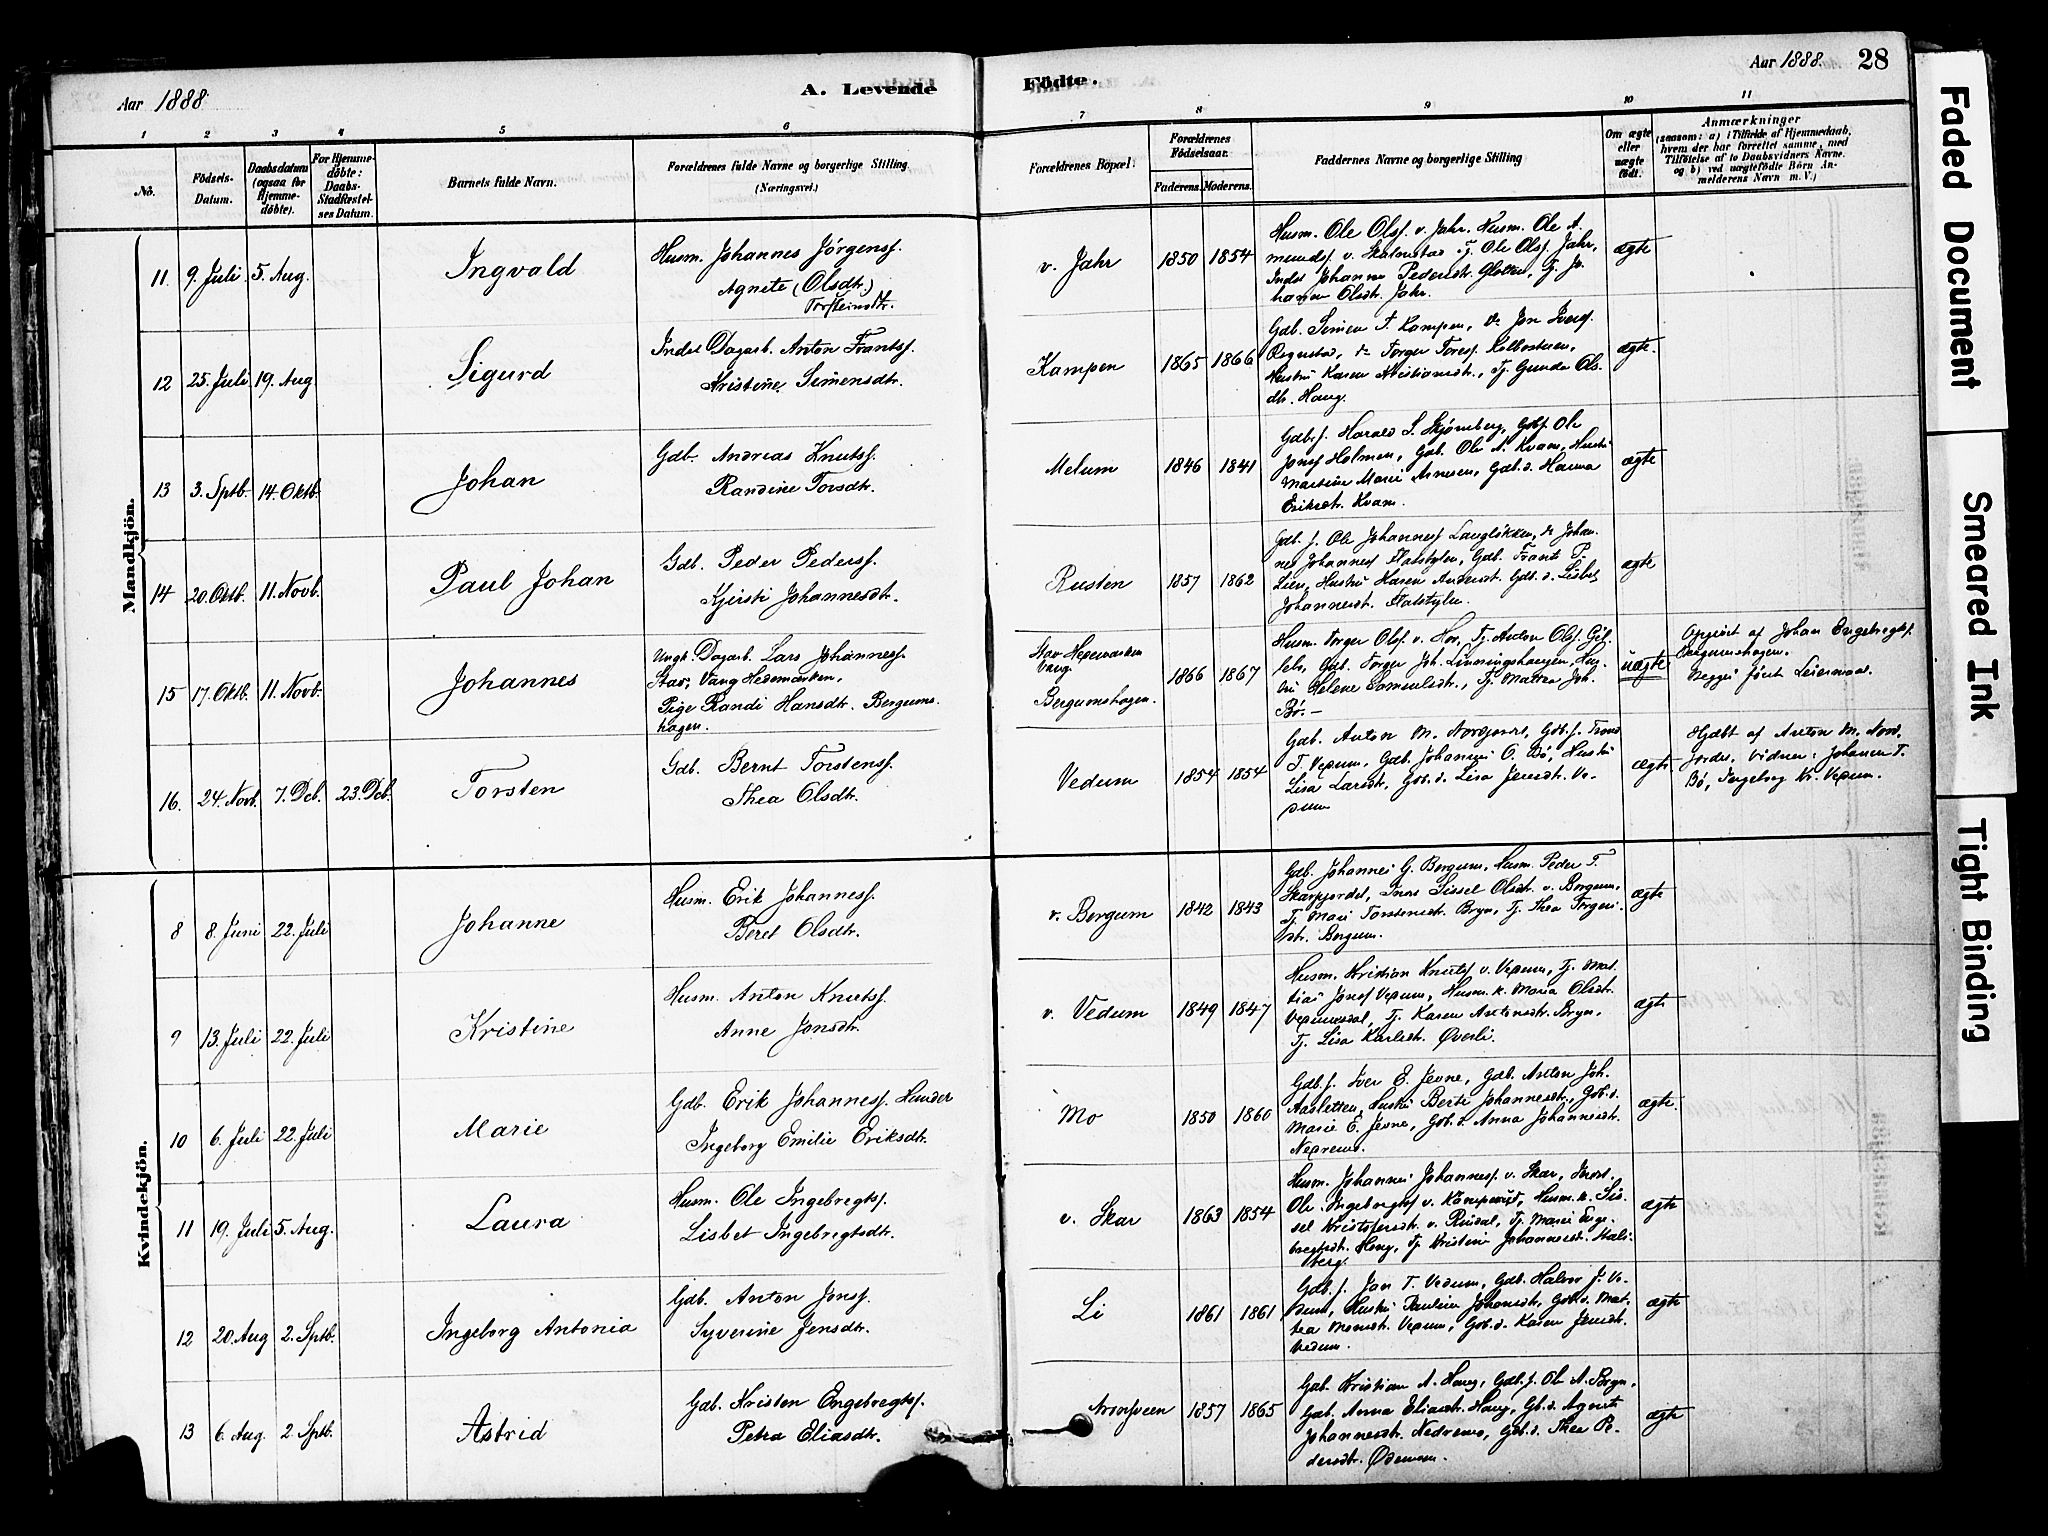 Aar 1888.
A. Levende
Födte.
Aar 1888.
28
1 2 3 4 5 6 7 8 9 10 11
No.
Födsels-Datum.
Daabsdatum (ogsaa for Hjemme-döbte).
For Hjemme-döbte: Daabs-Stadfæstel-ses Datum.
Barnets fulde Navn.
Forældrenes fulde Navne og borgerlige Stilling (Næringsvei.)
Forældrenes Böpæl.
Forældrenes Fødselsaar.
Faderens. Moderens.
Faddernes Navne og borgerlige Stilling
Om ægte eller uægte født.
Anmærkninger
(saasom: a) i Tilfælde af Hjemmedaab,
hvem der har forrettet samme, med
Tilföielse af to Daabsvidners Navne.
og b) ved uægtefödte Börn An-
melderens Navn m. V.)
Mandkjön.
11. 9. Juli 5. Aug. Ingvald
Husm. Johannes Jörgenss.
Agnete (Olsdtr.)
Torsteinsdtr.
v. Jahr 1850 1854
Husm. Ole Olss. v. Jahr, Husm. Ole A.
Tj. Ole Olss. Jahr,
Johanne Pedersdtr.
Olsdtr. Jahr.
ægte
12 25. Juli 19. Aug Sigurd
Inderst Dagarb. Anton Frantss.
Kristine Simensdtr.
Kampen 1865 1866
Gdb. Simen T. Kampen, Jon Iverss.
Torger Toress.
Hustru Karen Kristiansdtr., Tj. Gunda Ols-
dtr. Haug.
ægte.
13 3. Sptb. 14. Oktb. Johan
Gdb. Andreas Knutss.
Randine Torsdtr.
Melum 1846 1841
Gdb.s. Harald S. Skjönsberg, Gdb.s. Ole
Jonss. Holmen, Gdb. Ole A. Kvam, Hustru
Martine Marie Arnesen, Gdb.d. Hanna
Eriksdtr. Kvam.
ægte
14 20. Oktb. 11. Novb. Paul Johan
Gdb. Peder Pederss.
Kjersti Johannesdtr.
Rusten 1857 1862
Gdb. s. Ole Johanness. Langlökken, Johan-
nes Johanness. Gdb. Frants P.
Lien, Hustru Karen Gdb. d. Lisbet
Johannesdtr.
ægte
15 17. Oktb. 11. Novb. Johannes
Ungk. Dagarb. Lars Johanness.
Stav, Vang Hedemarken,
Pige Randi Hansdtr. Bergums-
hagen.
Stav Hedemarken
Vang
Bergumshagen. 1866 1867
Husm. Torger Olss. v. Hov, Tj. Anton Olss.
Gdb. Torger Joh. Hus-
tru Helene Samuelsdtr., Tj. Mattea Joh.
Bö. –
uægte
Opgivet af Johan Engebregtss.
Bergumshagen.
Begges förste Leiermaal.
16. 24. Novb. 7. Dcb. 23. Dcb. Torsten
Gdb. Bernt Torstenss.
Thea Olsdtr.
Vedum 1854 1854
Gdb. Anton M. Nordjordet, Gdb.s. Trond
T. Vedum, Gdb. Johannes O. Bö, Hustru
Lisa Larsdtr., Gdb. d. Lisa Jensdtr. Ve-
dum
ægte
Hjdbt af Anton M. Nord-
jordet. Vidner: Johannes T.
Bö, Ingeborg Kr. Vedum.
Kvindekjön.
8 8. Juni 22. Juli Johanne
Husm. Erik Johanness.
Beret Olsdtr.
v. Bergum 1842 1843
Gdb. Johannes G. Bergum, Husm. Peder T.
Skarjordet, Inderst Sissel Olsdtr. v. Bergum,
Tj. Mari Torstensdtr. Bryn, Tj. Thea Torgers-
dtr. Bergum.
ægte
9 13. Juli 22. Juli Kristine
Husm. Anton Knutss.
Anne Jonsdtr.
v. Vedum 1849 1847
Husm. Kristian Knutss. v. Vedum, Tj. Mat-
tias Jonss. Vedum, Husm.k. Maria Olsdtr.
Vedumsdal, Tj. Karen Antonsdtr. Bryn,
Tj. Lisa Karlsdtr. Överli.
ægte
10 6. Juli 22. Juli Marie
Gdb. Erik Johanness. Hunder
Ingeborg Emilie Eriksdtr.
Mo 1850 1860
Gdb.s. Iver E. Jevne, Gdb. Anton Joh.
Aasletten, Hustru Berte Johannesdtr., Gdb.d.
Marie E. Jevne, Gdb.d. Anna Johannesdtr.
Nedremo.
ægte.
11 19. Juli 5. Aug. Laura
Husm. Ole Ingebregtss.
Lisbet Ingebregtsdtr.
v. Skar 1863 1854
Husm. Johannes Johanness. v. Skar, Inderst
Ole Ingebregtss. v. Husm.k. Sis-
sel Kristofersdtr. v. Rindal, Tj. Marie Enge-
bregtsdtr. Haug, Tj. Kristine Johannesdtr.
berg.
ægte
12 20. Aug 2. Sptb. Ingeborg Antonia
Gdb. Anton Jonss.
Syverine Jensdtr.
Li 1861 1861
Gdb.s. Jan T. Vedum, Gdb. Halvor J. Ve-
dum, Hustru Pauline Johansdtr., Gdb.d. Mat-
tea Monsdtr. Vedum, Gdb.d. Karen Jensdtr.
Vedum.
ægte
13 6. Aug. 2. Sptb. Astrid
Gdb. Kristen Engebregtss.
Petra Eliasdtr.
1857 1865
Gdb. Kristian A. Haug, Gdb.s. Ole A. Bryn,
Gdb. Anna Eliasdtr. Haug, Gb.d. Agnete
Johannesdtr. Nedremo, Gdb.d. Thea Pe-
dersdtr. Ödemoen.
ægte
Faded Document
Smeared Ink
Tight Binding